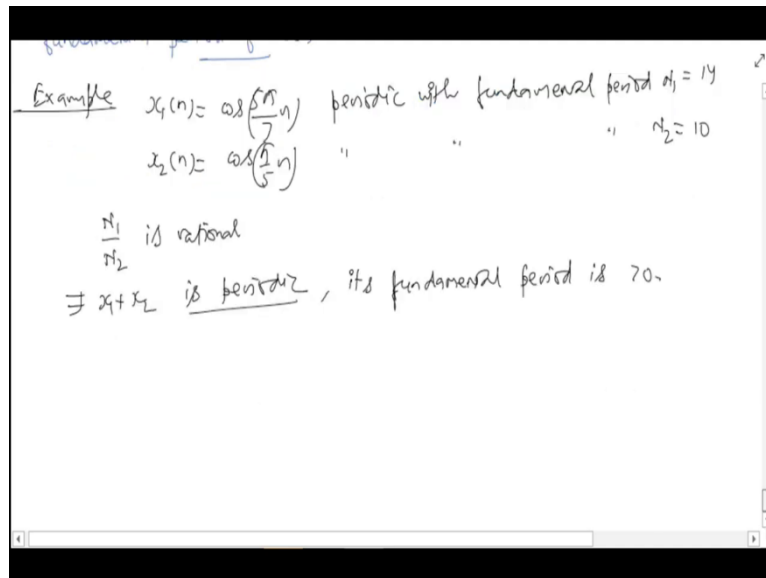 fundamental period of
Example x₁(n) = cos(5π/7 n) periodic with fundamental period N₁ = 14
x₂(n) = cos(π/5 n) " " " N₂ = 10
N₁/N₂ is rational
⇒ x₁+x₂ is periodic, its fundamental period is 70.